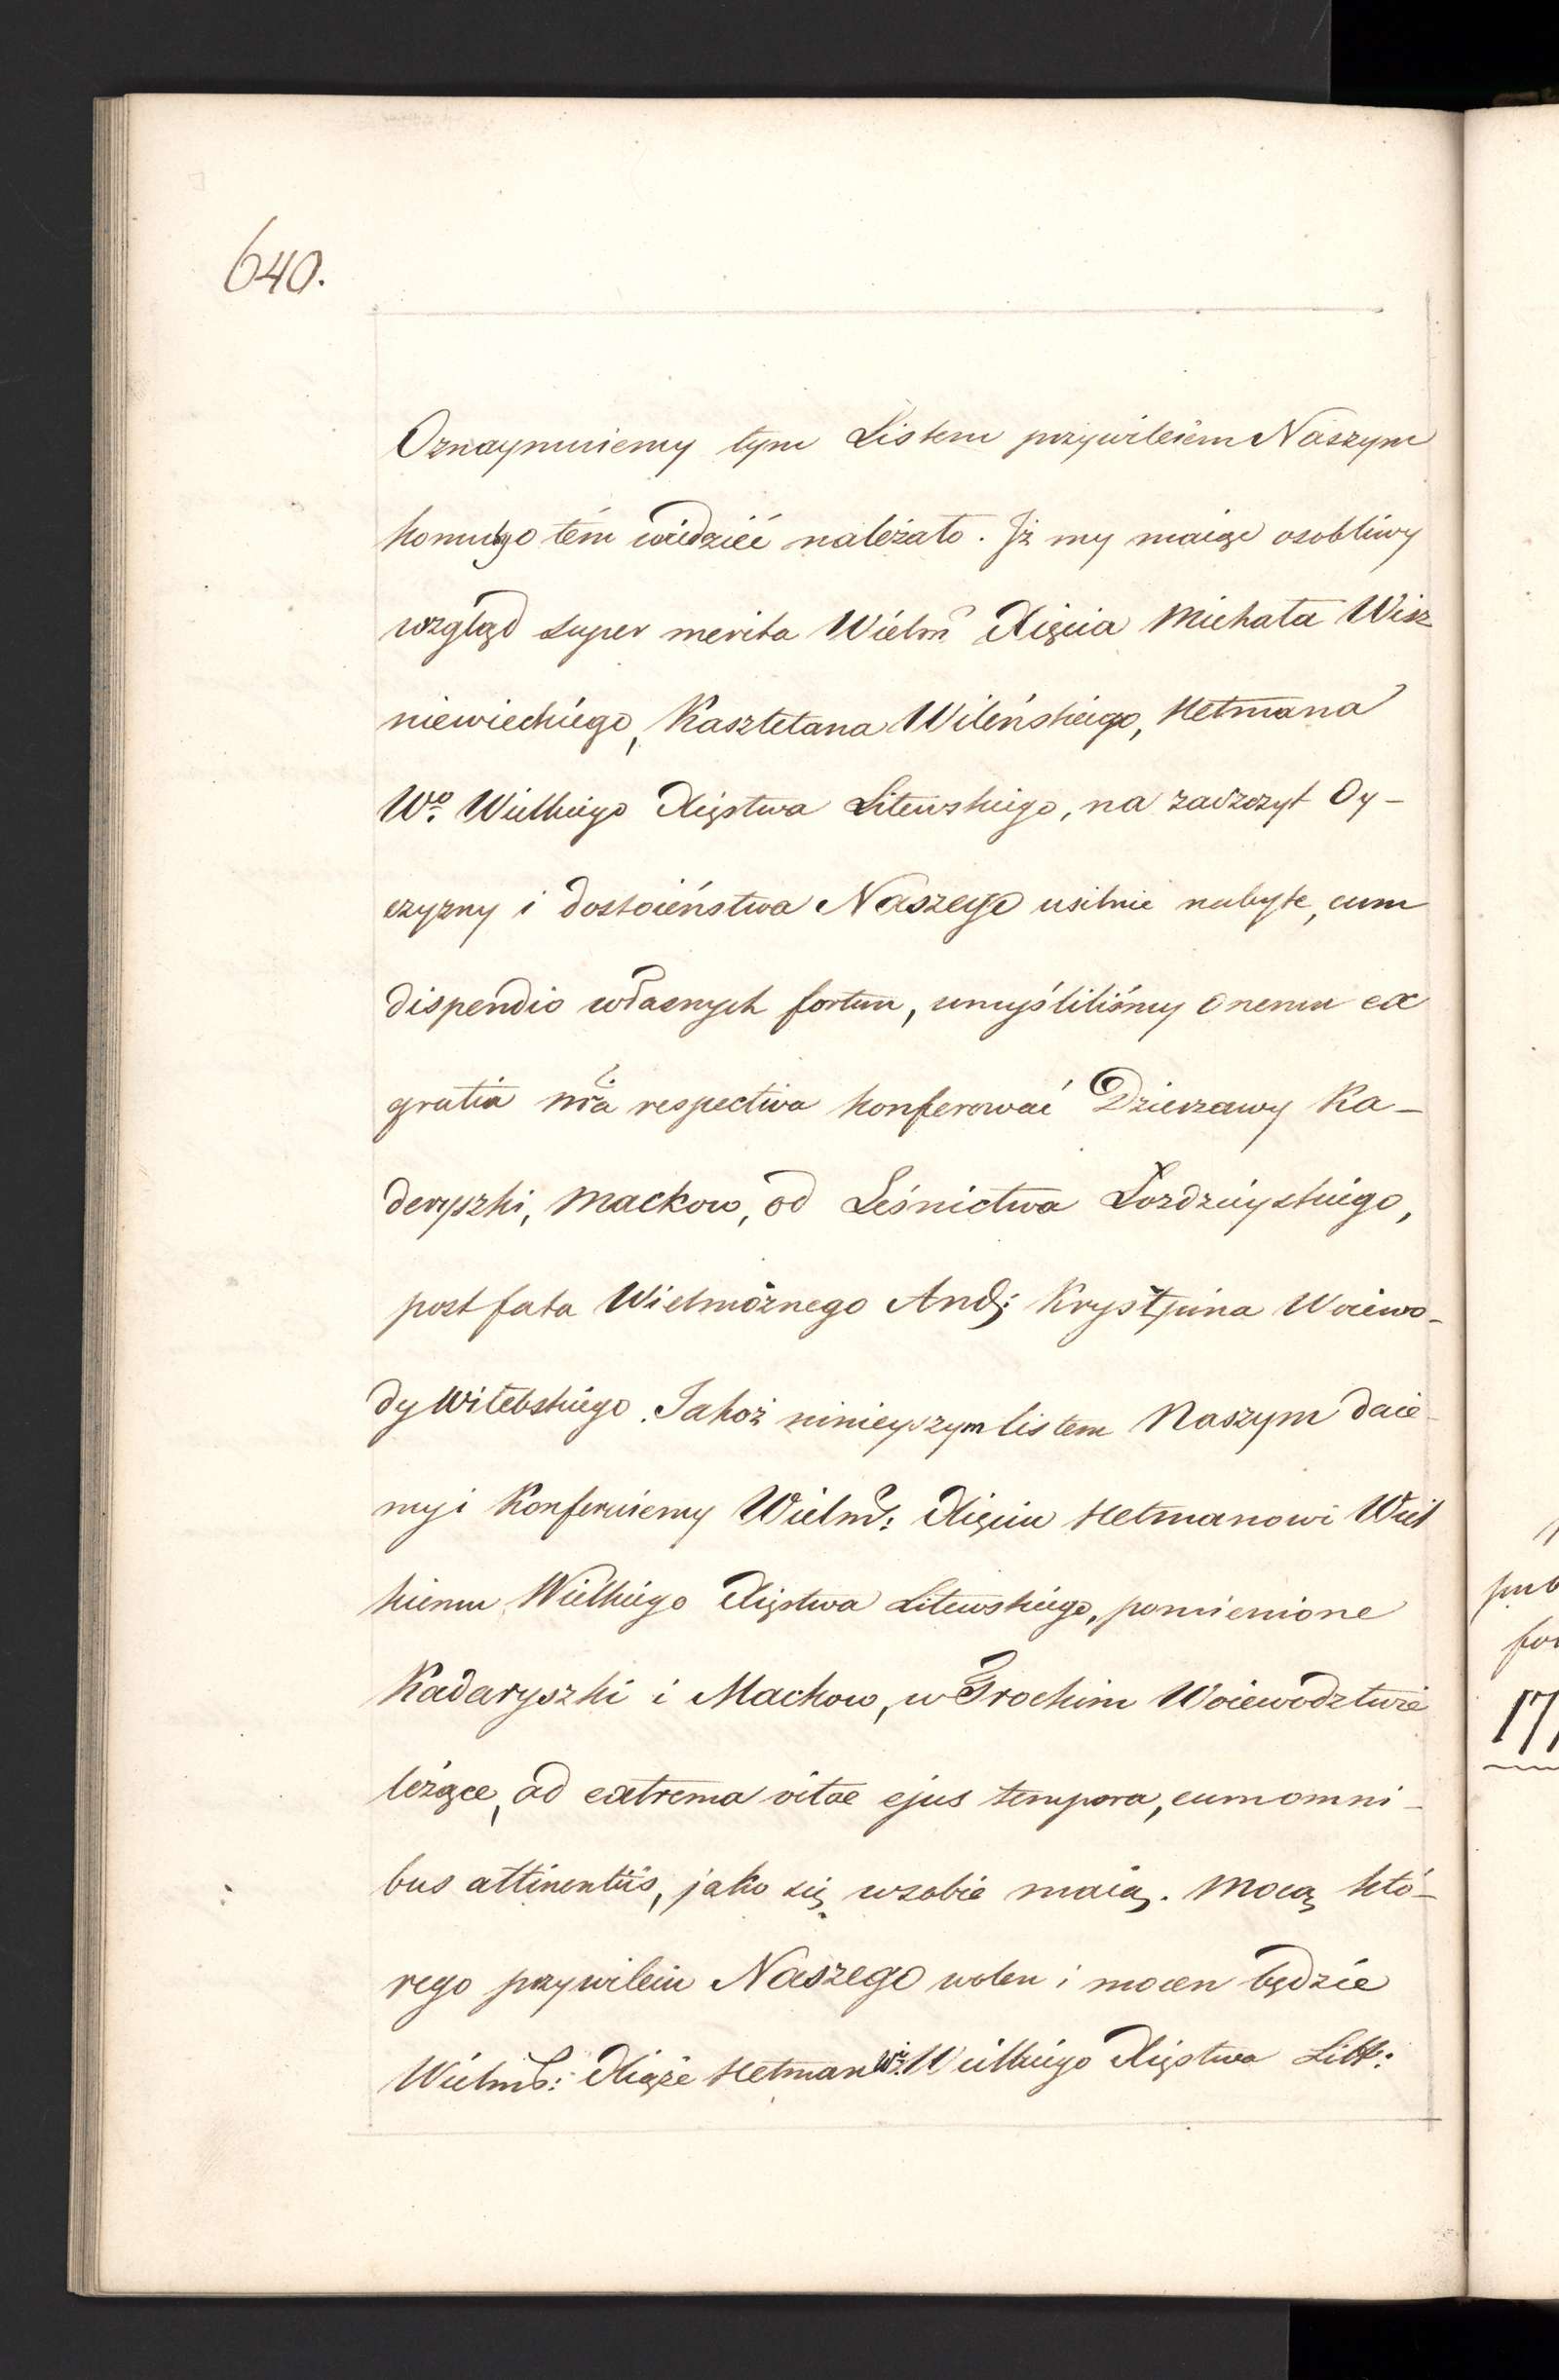 640.
Oznaymuiemy tym Listem przywileiem Naszym
komuby o tém wiedzieć należało. Iż my maiąc osobliwy
wzgląd super merita Wielmo Xięcia Michała Wisz
niewieckiego, Kasztelana Wileńskiego, Hetmana
Wo. Wielkiego Xięstwa Litewskiego, na zaszczyt Oy-
czyzny i dostoieństwa Naszego usilnie nabyte, cum
dispendio własnych fortun, umyśliliśmy onemu ex
gratia nra respectiva konferować Dzierzawy Ka-
deryszki, Mackow, od Leśnictwa Łozdzieyskiego,
post fata Wielmożnego And: Krysztpina Woiewo-
dy Witebskiego. Jakoż ninieyszym listem Naszym daie-
my i Konferuiemy Wielm: Xięciu Hetmanowi Wiel
kiemu Wielkiego Xięstwa Litewskiego, pomienione
Kadaryszki i Mackow, w Trockim Woiewodztwie
leżące, ad extrema vitae ejus tempora, cum omni-
bus attinentiis, jako się w sobie maią. Mocą któ-
rego przywileiu Naszego wolen i mocen będzie
Wielm: Xiąże Hetman W. Wielkiego Xięstwa Litt: